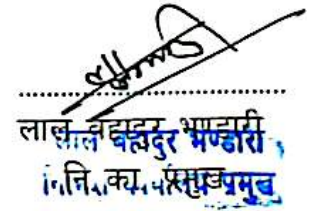 लाल बहादुर भण्डारी
लाल बहादुर भण्डारी
नि. का. प्रमुख
प्रमुख